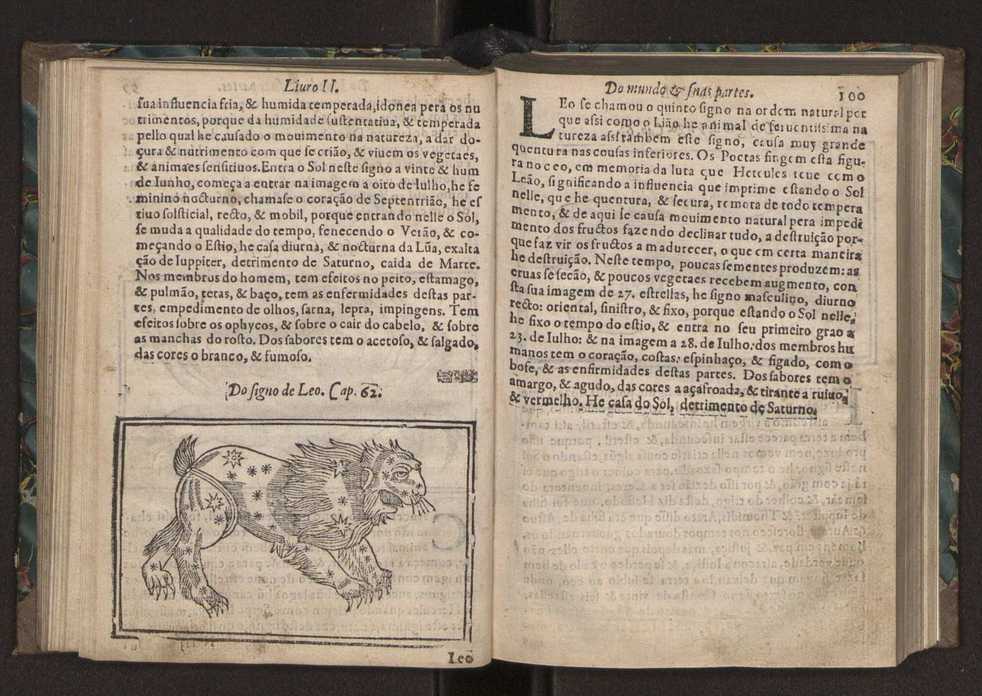 Liuro II.
sua influencia fria, & humida temperada, idonea pera os nu
trimentos, porque da humidade sustentatiua, & temperada
pello qual he causado o mouimento na natureza, a dar do-
çura & nutrimento com que se crião, & viuem os vegetaes,
& animaes sensitiuos. Entra o Sol neste signo a vinte & hum
de Iunho, começa a entrar na imagem a oito de Iulho, he fe
minino nocturno, chamase o coração de Septentrião, he es
tiuo solsticial, recto, & mobil, porque entrando nelle o Sol,
se muda a qualidade do tempo, fenecendo o Verão, & co-
meçando o Estio, he casa diurna, & nocturna da Lũa, exalta
ção de Iuppiter, detrimento de Saturno, caida de Marte.
Nos membros do homem, tem efeitos no peito, estamago,
& pulmão, tetas, & baço, tem as enfermidades destas par-
tes, empedimento de olhos, sarna, lepra, impingens. Tem
efeitos sobre os ophycos, & sobre o cair do cabelo, & sobre
as manchas do rosto. Dos sabores tem o acetoso, & salgado,
das cores o branco, & fumoso.
Do signo de Leo. Cap. 62.
Leo
Do mundo & suas partes. 100
LEo se chamou o quinto signo na ordem natural por
que assi como o Lião he animal de feruentissima na
tureza assi tambem este signo, causa muy grande
quentura nas cousas inferiores. Os Poetas fingem esta figu-
ra no ceo, em memoria da luta que Hercules teue com o
Leão, significando a influencia que imprime estando o Sol
nelle, que he quentura, & secura, remota de todo tempera
mento, & de aqui se causa mouimento natural pera impedi
mento dos fructos fazendo declinar tudo, a destruição por-
que faz vir os fructos a madurecer, o que em certa maneira
he destruição. Neste tempo, poucas sementes produzem: as
eruas se secão, & poucos vegetaes recebem augmento, con
sta sua imagem de 27. estrellas, he signo masculino, diurno
recto: oriental, sinistro, & fixo, porque estando o Sol nelle,
he fixo o tempo do estio, & entra no seu primeiro grao a
23. de Iulho: & na imagem a 28. de Iulho: dos membros hu
manos tem o coração, costas: espinhaço, & figado, com o
bofe, & as enfirmidades destas partes. Dos sabores tem o
amargo, & agudo, das cores a açafroada, & tirante a ruiuo,
& vermelho. He casa do Sol, detrimento de Saturno.